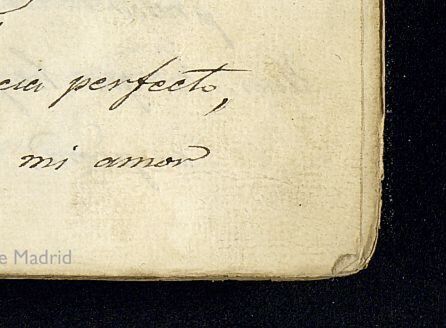 cia perfecto,
mi amor
e Madrid